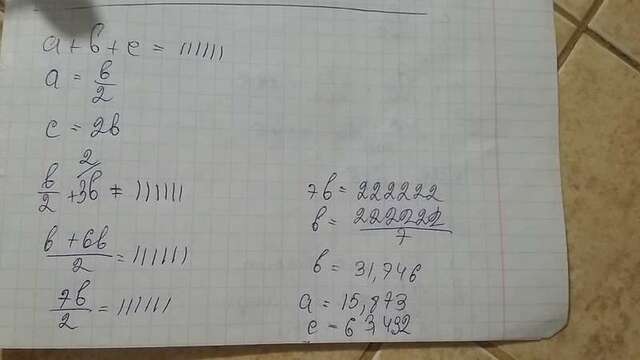 a + b + c = 111111
a = b/2
c = 2b
b/2 + 3b/2 + 111111
b + 6b/2 = 111111
7b/2 = 111111
7b = 222222
b = 222222/7
b = 31,746
a = 15,873
c = 63492